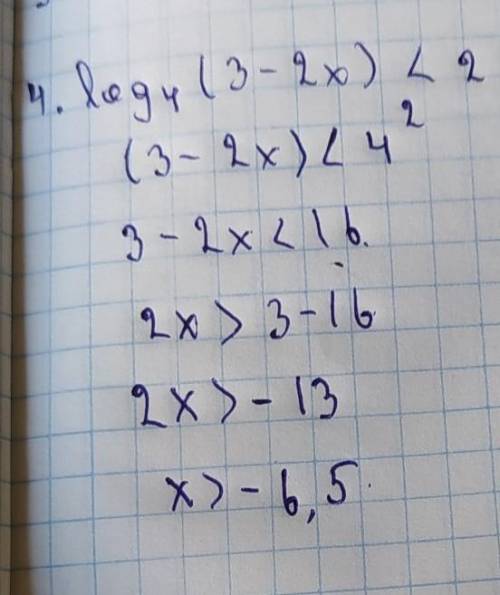 4. log₄(3-2x) < 2
(3-2x) < 4²
3-2x < 16.
2x > 3-16
2x > -13
x > -6,5.